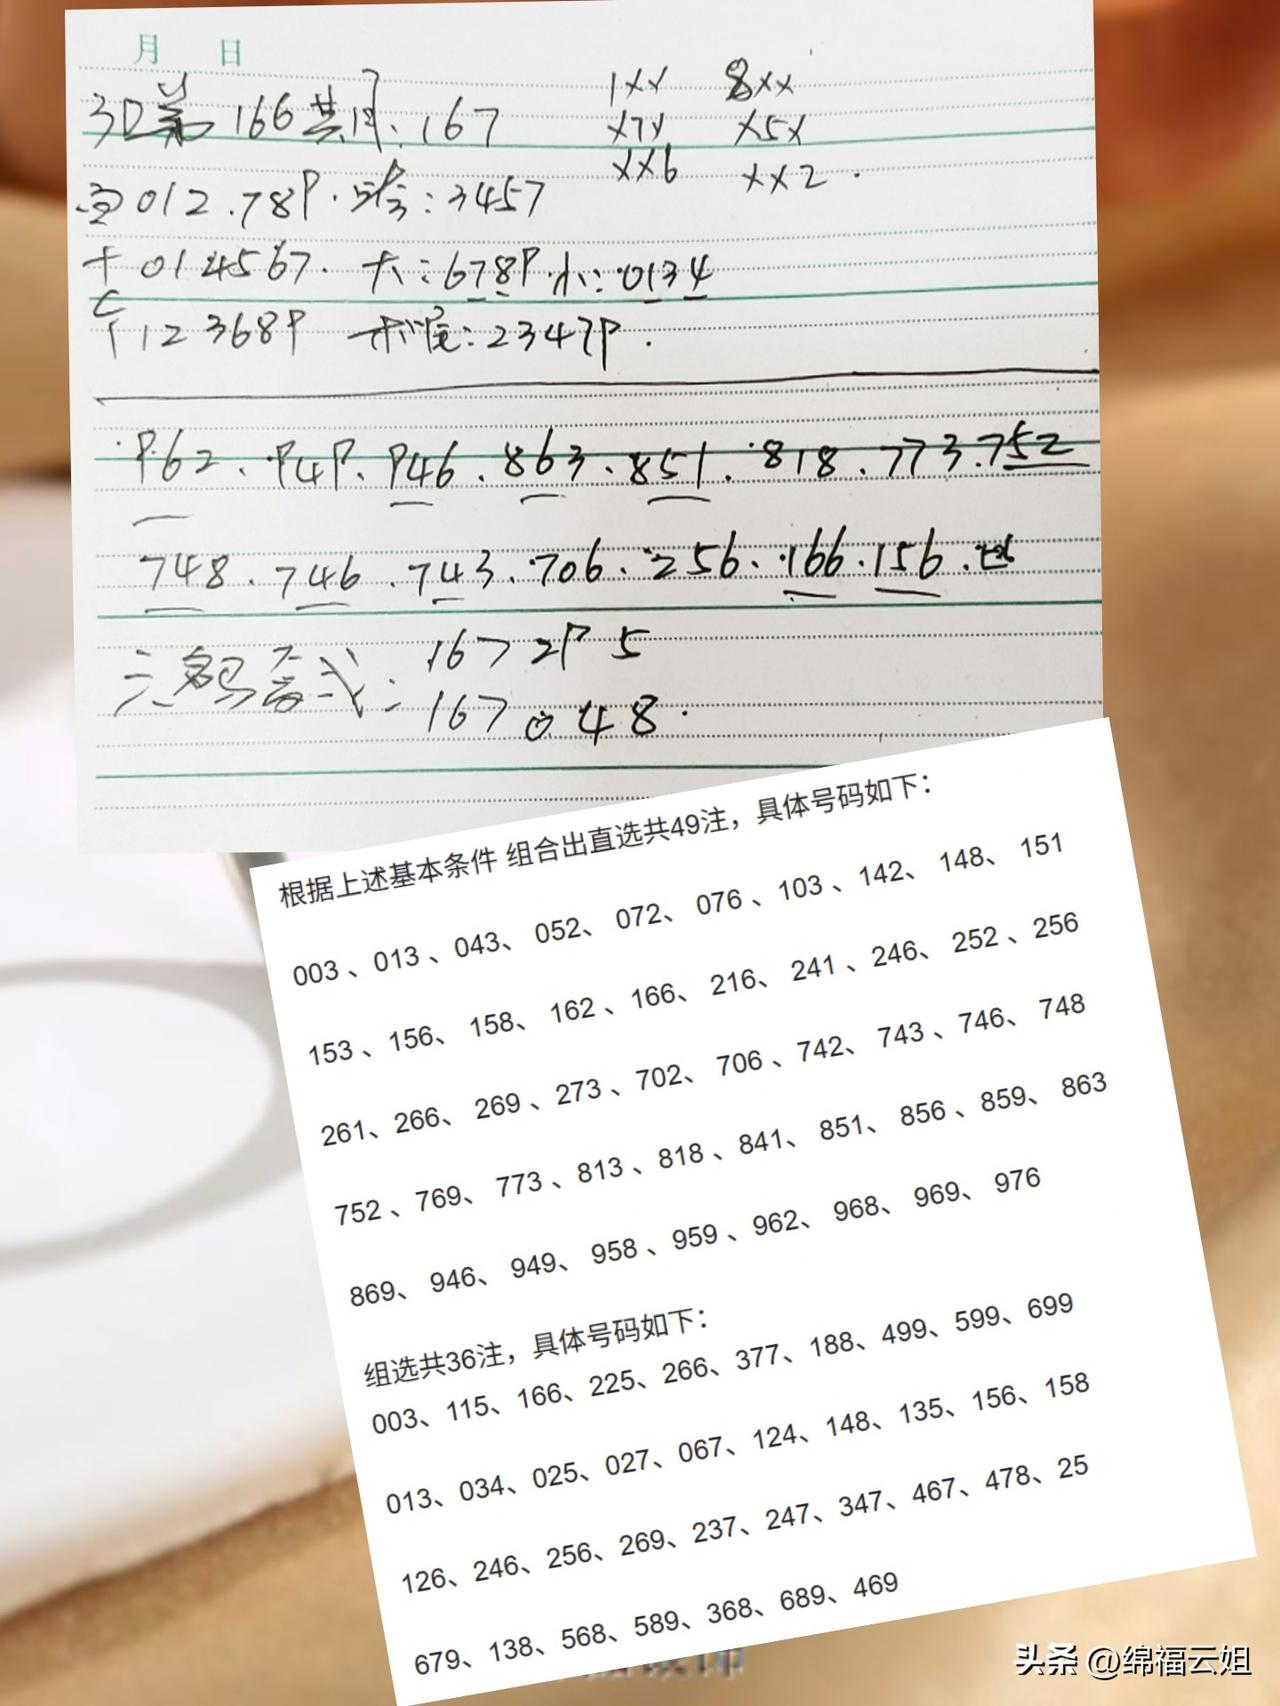 月 日
3D第166期: 167
1XX 8XX
X7X X5X
XX6 XX2.
百012.789. :3457
十014567. 大:6789.小:0134
个123689 :23479.
962.949.946.863.851.818.773.752
748.746.743.706.256.166.156.
六码 : 167295
167048.
根据上述基本条件 组合出直选共49注，具体号码如下：
003、013、043、052、072、076、103、142、148、151
153、156、158、162、166、216、241、246、252、256
261、266、269、273、702、706、742、743、746、748
752、769、773、813、818、841、851、856、859、863
869、946、949、958、959、962、968、969、976
组选共36注，具体号码如下：
003、115、166、225、266、377、188、499、599、699
013、034、025、027、067、124、148、135、156、158
126、246、256、269、237、247、347、467、478、25
679、138、568、589、368、689、469
头条 @绵福云姐